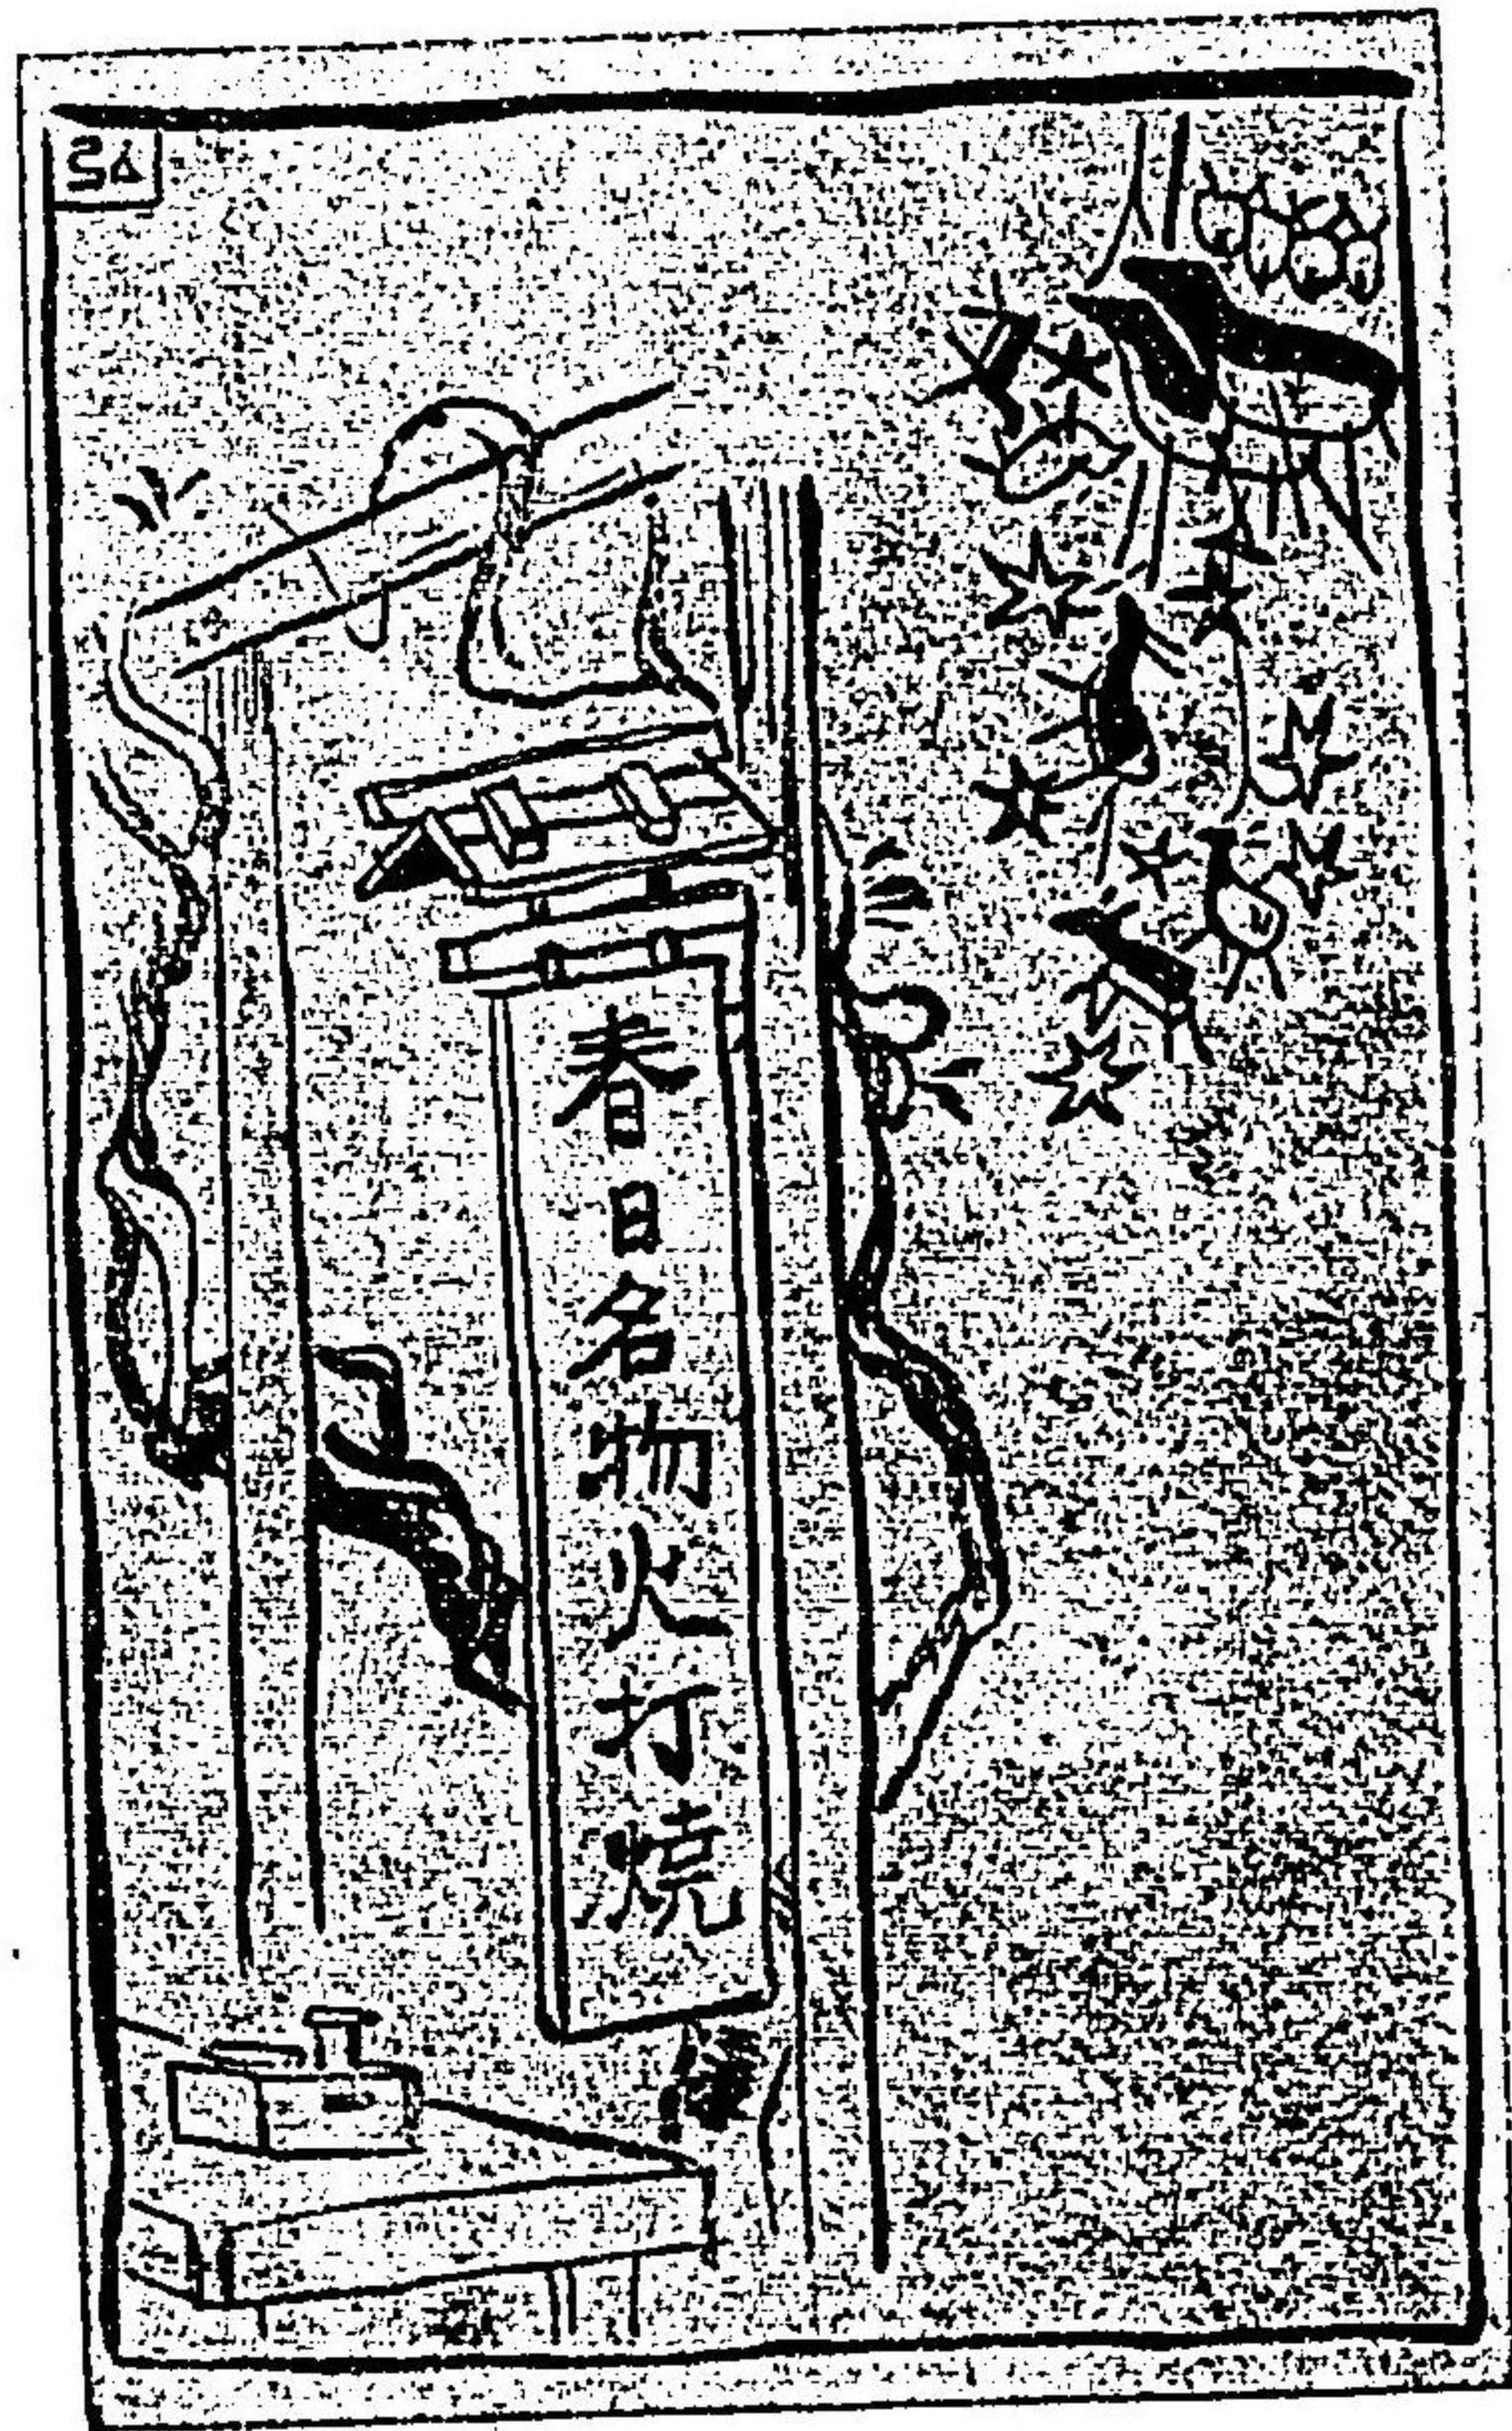 春日名物火打焼